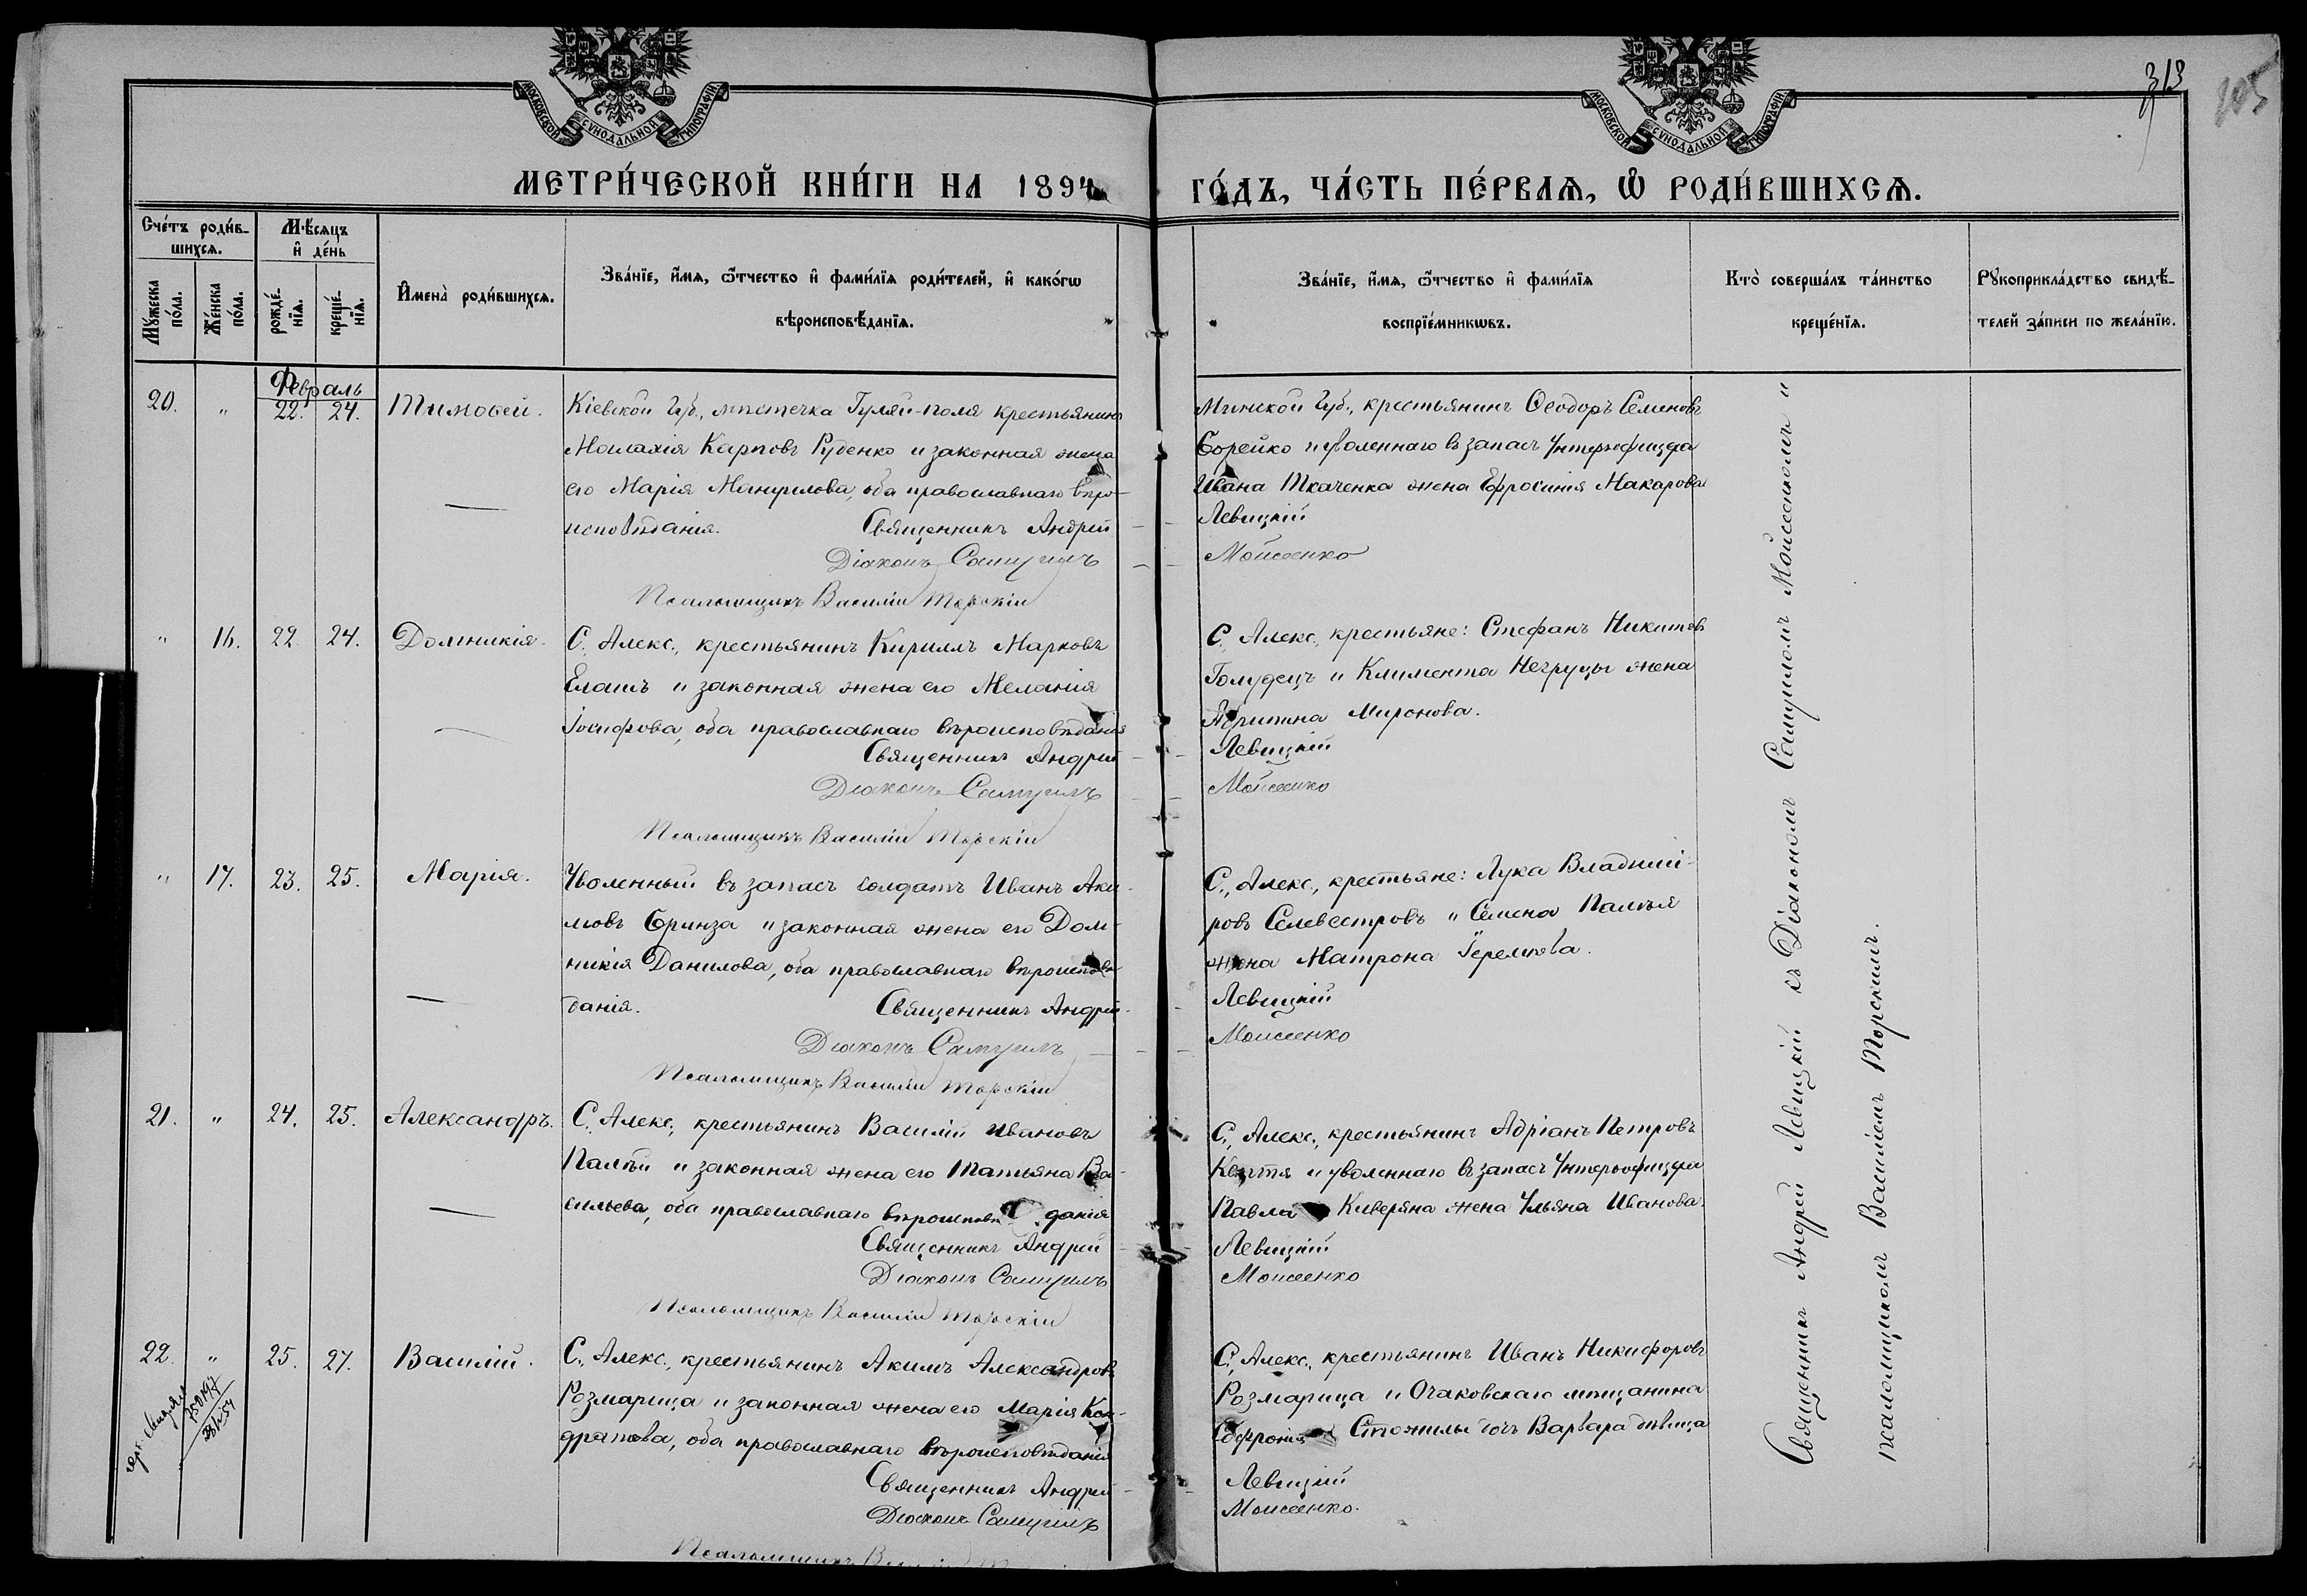 МОСКОВСКОЙ СѴНОДАЛЬНОЙ ТИПОГРАФІИ
МОСКОВСКОЙ СѴНОДАЛЬНОЙ ТИПОГРАФІИ
313
105
МЕТРИ́ЧЕСКОЙ КНИ́ГИ НА 1894 ГО́ДЪ, ЧА́СТЬ ПЕ́РВАѦ, Ѡ҆ РОДИ́ВШИХСѦ.
Сче́тъ роди́в-
шихсѧ.
Мѣ́сѧцъ
и҆ де́нь
Мꙋ́жеска
по́ла.
Же́нска
по́ла.
рожде́-
нїѧ.
креще́-
нїѧ.
И҆мена̀ роди́вшихсѧ.
Зва́нїе, и҆́мѧ, ѻ҆́тчество и҆ фами́лїѧ роди́телей, и҆ како́гѡ
вѣроисповѣ́данїѧ.
Зва́нїе, и҆́мѧ, ѻ҆́тчество и҆ фами́лїѧ
воспрїе́мникѡвъ.
Кто̀ соверша́лъ та́инство
креще́нїѧ.
Рꙋкоприкла́дство свидѣ́-
телей за́писи по жела́нїю.
Февраль
20. " 22. 24. Тимоѳей. Кіевской Губ., мѣстечка Гуляй-поля крестьянинъ
Малахія Карповъ Руденко и законная жена
его Марія Мануилова, оба православнаго вѣро-
исповѣданія. Священникъ Андрей
Діаконъ Самуилъ
Псаломщикъ Василій Торскій
Минской Губ., крестьянинъ Ѳеодоръ Семеновъ
Борейко и уволеннаго въ запасъ Унтеръофицера
Ивана Ткаченка жена Ефросинія Макарова
Левицкій
Моисеенко
" 16. 22. 24. Домникія. С. Алекс., крестьянинъ Кириллъ Марковъ
Еланъ и законная жена его Меланія
Іосифова, оба православнаго вѣроисповѣданія
Священникъ Андрей
Діаконъ Самуилъ
Псаломщикъ Василій Торскій
С. Алекс., крестьяне: Стефанъ Никитовъ
Голудецъ и Климента Негруцы жена
Агрипина Миронова.
Левицкій
Моисеенко
" 17. 23. 25. Марія. Уволенный въ запасъ солдатъ Иванъ Аки-
мовъ Бринза и законная жена его Дом-
никія Данилова, оба православнаго вѣроисповѣ-
данія. Священникъ Андрей
Діаконъ Самуилъ
Псаломщикъ Василій Торскій
С. Алекс., крестьяне: Лука Владимі-
ровъ Селевестровъ и Семена Палѣя
жена Матрона Іереміева.
Левицкій
Моисеенко
21. " 24. 25. Александръ. С. Алекс., крестьянинъ Василій Ивановъ
Палѣй и законная жена его Татьяна Ва-
сильева, оба православнаго вѣроисповѣданія
Священникъ Андрей
Діаконъ Самуилъ
Псаломщикъ Василій Торскій
С. Алекс., крестьянинъ Адріанъ Петровъ
и уволеннаго въ запасъ Унтерофицера
Павла Киверяна жена Ульяна Иванова.
Левицкій
Моисеенко
22. " 25. 27. Василій. С. Алекс., крестьянинъ Акимъ Александровъ
Розмарица и законная жена его Марія Кон-
дратова, оба православнаго вѣроисповѣданія
Священникъ Андрей
Діаконъ Самуилъ
Псаломщикъ
С. Алекс., крестьянинъ Иванъ Никифоровъ
Розмарица и Очаковскаго мѣщанина
Софронія Стожилы дочь Варвара дѣвица
Левицкій
Моисеенко.
Священникъ Андрей Левицкій съ Діакономъ Самуиломъ Моисеенкомъ и
псаломщикомъ Василіемъ Торскимъ.